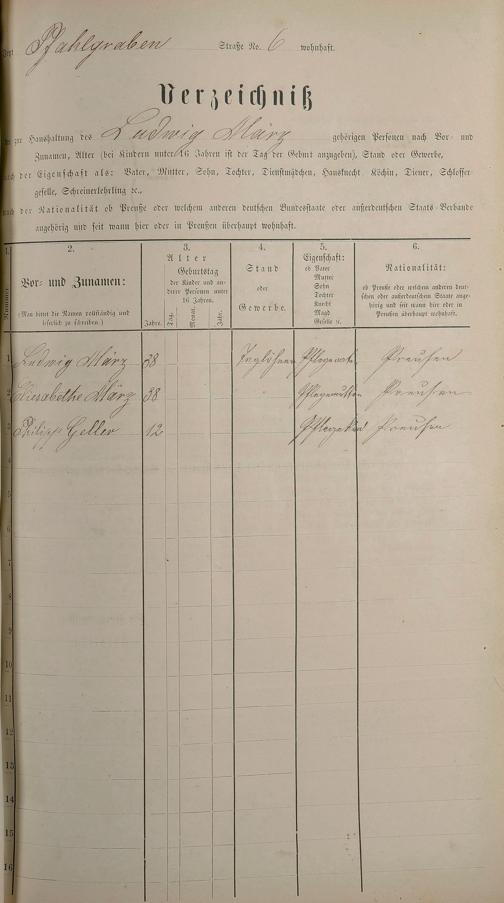 Pfahlgraben Straße No. 6 wohnhaft.
Verzeichniß
zur Haushaltung des Ludwig März gehörigen Personen nach Vor- und
Zunamen, Alter (bei Kindern unter 16 Jahren ist der Tag der Geburt anzugeben), Stand oder Gewerbe,
nach der Eigenschaft als: Vater, Mutter, Sohn, Tochter, Dienstmädchen, Hausknecht, Köchin, Diener, Schlosser-
geselle, Schreinerlehrling ꝛc.,
nach der Nationalität ob Preuße oder welchem anderen deutschen Bundesstaate oder außerdeutschen Staats-Verbande
angehörig und seit wann hier oder in Preußen überhaupt wohnhaft.
1. 2. 3. 4. 5. 6.
Nummer
Vor- und Zunamen:
(Man bittet die Namen vollständig und
leserlich zu schreiben.)
Alter
Geburtstag
der Kinder und an-
derer Personen unter
16 Jahren.
Jahre. Tag. Monat. Jahr.
Stand
oder
Gewerbe.
Eigenschaft:
ob Vater
Mutter
Sohn
Tochter
Knecht
Magd
Geselle ꝛc.
Nationalität:
ob Preuße oder welchem anderen deut-
schen oder außerdeutschen Staate ange-
hörig und seit wann hier oder in
Preußen überhaupt wohnhaft.
1 Ludwig März 58 Taglöhner Pflegevater Preußen
2 Elisabethe März 58 Pflegemutter Preußen
3 Philipp Geller 12 Pflegekind Preußen
4
5
6
7
8
9
10
11
12
13
14
15
16